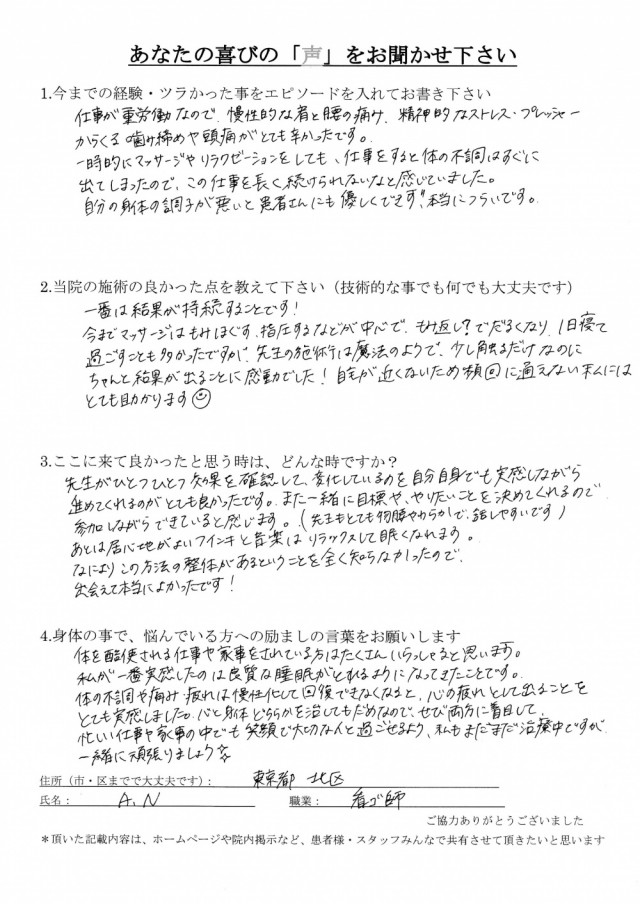 あなたの喜びの「声」をお聞かせ下さい
1.今までの経験・ツラかった事をエピソードを入れてお書き下さい
仕事が重労働なので、慢性的な肩と腰の痛み、精神的なストレス・プレッシャー
からくる噛み締めや頭痛がとても辛かったです。
一時的にマッサージやリラクゼーションをしても、仕事をすると体の不調はすぐに
出てしまったので、この仕事を長く続けられないなと感じていました。
自分の身体の調子が悪いと患者さんにも優しくできず、本当につらいです。
2.当院の施術の良かった点を教えて下さい（技術的な事でも何でも大丈夫です）
一番は結果が持続することです！
今までマッサージはもみほぐす、指圧するなどが中心で、もみ返し？でだるくなり、1日寝て
過ごすことも多かったですが、先生の施術は魔法のようで、少し触るだけなのに
ちゃんと結果が出ることに感動でした！自宅が近くないため頻回に通えない私には
とても助かります
3.ここに来て良かったと思う時は、どんな時ですか？
先生がひとつひとつ効果を確認して、変化しているのを自分自身でも実感しながら
進めてくれるのがとても良かったです。また一緒に目標や、やりたいことを決めてくれるので
参加しながらできていると感じます。（先生もとても物腰やわらかで、話しやすいです）
あとは居心地がよいフインキと音楽はリラックスして眠くなれます。
なによりこの方法の整体があるということを全く知らなかったので、
出会えて本当によかったです！
4.身体の事で、悩んでいる方への励ましの言葉をお願いします
体を酷使される仕事や家事をされている方はたくさんいらっしゃると思います。
私が一番実感したのは良質な睡眠がとれるようになってきたことです。
体の不調や痛み、疲れは慢性化して回復できなくなると、心の疲れとして出ることを
とても実感しました。心と身体どちらかを治してもだめなので、ぜひ両方に着目して、
忙しい仕事や家事の中でも笑顔で大切な人と過ごせるよう、私もまだまだ治療中ですが
一緒に頑張りましょう☆
住所（市・区までで大丈夫です）： 東京都 北区
氏名： A.N 職業： 看ゴ師
ご協力ありがとうございました
＊頂いた記載内容は、ホームページや院内掲示など、患者様・スタッフみんなで共有させて頂きたいと思います